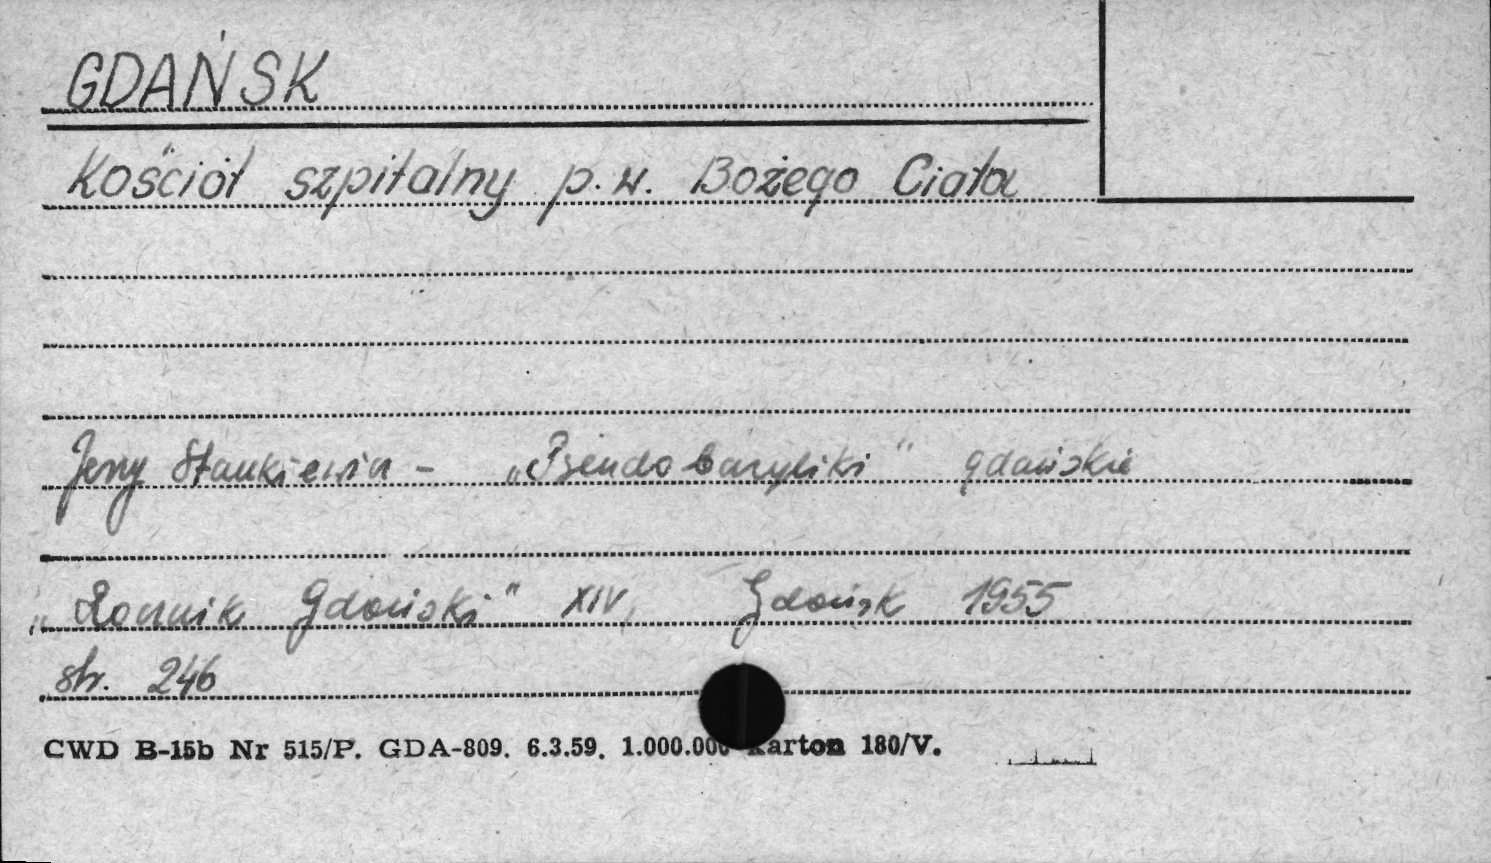 GDAŃSK
Kościół szpitalny p.w. Bożego Ciała
Jerzy Stankiewicz - „Pseudobazyliki" gdańskie
„Rocznik Gdański" XIV, Gdańsk 1955
str. 246
CWD B-15b Nr 515/P. GDA-809. 6.3.59. 1.000.000 Karton 180/V.